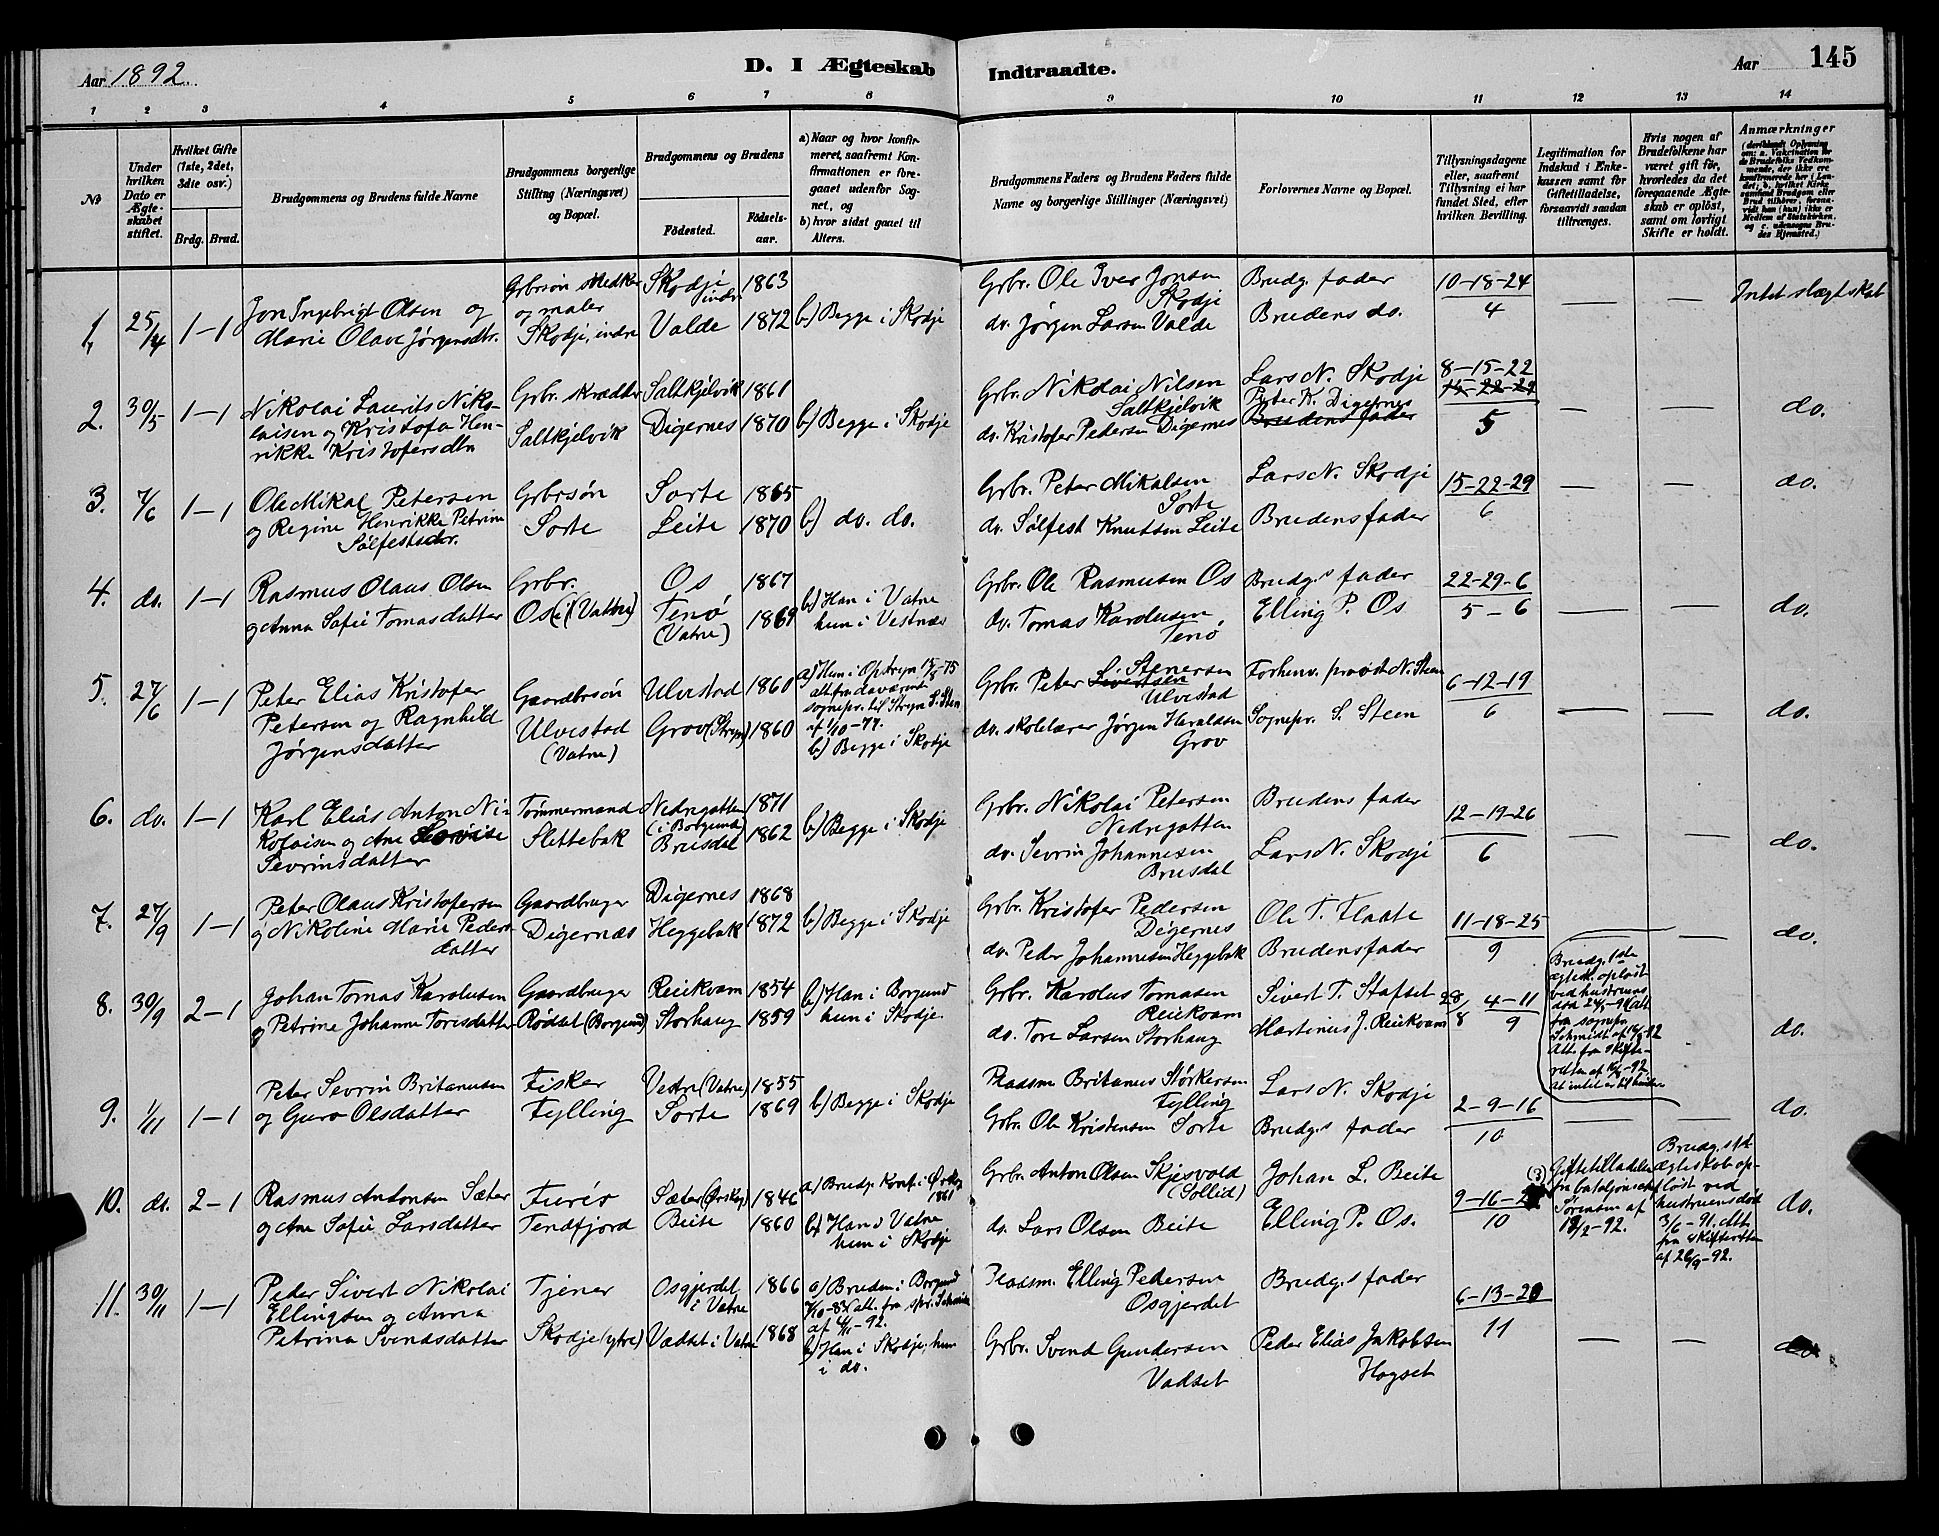 Aar 1892.
D. I Ægteskab Indtraadte.
Aar 145
1 2 3 4 5 6 7 8 9 10 11 12 13 14
No
Under hvilken Dato er Ægteskabet stiftet.
Hvilket Gifte (1ste, 2det, 3die osv.)
Brdg. Brud.
Brudgommens og Brudens fulde Navne
Brudgommens borgerlige Stilling (Næringsvei) og Bopæl.
Brudgommens og Brudens
Fødested.
Fødselsaar.
a) Naar og hvor konfirmeret, saafremt Konfirmationen er foregaaet udenfor Sognet, og
b) hvor sidst gaaet til Alters.
Brudgommens Faders og Brudens Faders fulde Navne og borgerlige Stillinger (Næringsvei)
Forlovernes Navne og Bopæl.
Tillysningsdagene eller, saafremt Tillysning ei har fundet Sted, efter hvilken Bevilling.
Legitimation for Indskud i Enkekassen samt for Giftetilladelse, forsaavidt saadan tiltrænges.
Hvis nogen af Brudefolkene har været gift før, hvorledes da det foregaaende Ægteskab er opløst, samt om lovligt Skifte er holdt.
Anmærkninger
(deriblandt Oplysning om: a. Vakcination for de Brudefolks Vedkommende, der ikke ere konfirmerede her i Landet; b. hvilket Kirkesamfund Brudgom eller Brud tilhører, forsaavidt han (hun) ikke er Medlem af Statskirken, og c. udensogns Brudes Hjemsted.)
1, 25/4 1-1
Jon Ingebrigt Olsen og
Marie Olave Jørgensdtr.
Grbrsøn snedker
og maler
Skodje, indre
Skodje indre 1863
Valde 1872
b) Begge i Skodje
Grbr. Ole Iver Jonsen
Skodje
do. Jørgen Larsen Valde
Brudg. fader
Brudens do.
10-18-24
4
Intet slægtskab
2. 30/5 1-1
Nikolai Laurits Niko-
laisen og Kristofa Hen-
rikke Kristofersdtr
Grbr. skrædder
Saltkjelvik
Saltkjelvik 1861
Digernes 1870
b) Begge i Skodje
Grbr. Nikolai Nilsen
Saltkjelvik
do. Kristofer Pedersen Digernes
Lars N. Skodje
Peter K. Digernes
Brudens fader
8-15-22
15-22-29
5
do.
3. 7/6 1-1
Ole Mikal Petersen
og Regine Henrikke Petrine
Sølfestsdtr.
Grbrsøn
Sorte
Sorte 1865
Leite 1870
b) do. do.
Grbr. Peter Mikalsen
Sorte
do. Sølfest Knutsen Leite
Lars N. Skodje
Brudens fader
15-22-29
6
do.
4. do. 1-1
Rasmus Olaus Olsen
og Anna Sofie Tomasdatter
Grbr.
Os (i Vatne)
Os 1867
Tenø 1869
(Vatne)
b) Han i Vatne
hun i Vestnes
Grbr. Ole Rasmusen Os
do. Tomas Karolusen
Tenø
Brudg.s fader
Elling P. Os
22-29-6
5-6
do.
5. 27/6 1-1
Peter Elias Kristofer
Petersen og Ragnhild
Jørgensdatter
Gaardbrsøn
Ulvestad
(Vatne)
Ulvestad 1860
Grov (Stryn) 1860
a) Hun i Opstryn 15/8-75
att. fra daværende
sognepr. til Stryn S. Steen
af 1/10-77.
b) Begge i Skodje
Grbr. Peter Stenersen
Sivertsen
Ulvestad
do. skolelærer Jørgen Haraldsen
Grov
Forhenv. provst N. Steen
Sognepr. S. Steen
6-12-19
6
do.
6. do. 1-1
Karl Elias Anton Ni-
kolaisen og Ane Lovise
Sevrinsdatter
Tømmermand
Slettebak
Nedregotten 1871
(i Borgund)
Brusdal 1862
b) Begge i Skodje
Grbr. Nikolai Petersen
Nedregotten
do. Sevrin Johannesen
Brusdal
Brudens fader
Lars N. Skodje
12-19-26
6
do.
7. 27/9 1-1
Peter Olaus Kristofersen
og Nikoline Marie Peders-
datter
Gaardbruger
Digernæs
Digernes 1868
Heggebak 1872
b) Begge i Skodje
Grbr. Kristofer Pedersen
Digernes
do. Peder Johannesen Heggebak
Ole T. Flaate
Brudens fader
11-18-25
9
do.
8. 30/9 2-1
Johan Tomas Karolusen
og Petrine Johanne Toresdatter
Gaardbruger
Rødset (Borgund)
Reiekvam 1854
Storhaug 1859
b) Han i Borgund
hun i Skodje.
Grbr. Karolus Tomasen
Reiekvam
do. Tore Larsen Storhaug
Sivert T. Stafset
Martinus J. Reiekvam
28/8 4-11
9
Brudg. 1ste
ægtesk. opløst
ved hustruens
død 24/5-91 (att.
fra sognepr.
Schmidt af 14/8-92
Att. fra skifte-
retten af
at intet er til hinder
do.
9. 1/11 1-1
Peter Sevrin Britanusen
og Guro Olsdatter
Fisker
Fylling
Vestre (Vatne) 1855
Sorte 1869
b) Begge i Skodje
Pladsm Britanus Størkersen
Fylling
Grbr. Ole Kristensen Sorte
Lars N. Skodje
Brudg.s fader
2-9-16
10
do.
10. do. 2-1
Rasmus Antonsen Sæter
og Ane Sofie Larsdatter
Furér
Tendfjord
Sæter (Ørskog) 1846
Beite 1860
a) Brudg. konf. i Ørskog
1861
b) Han i Vatne
hun i Skodje
Grbr. Anton Olsen Skjesvold
(Sollid)
do. Lars Olsen Beite
Johan L. Beite
Elling P. Os.
9-16-23
10
Giftetilladelse
fra bataljonschef
Sørensen af
12/2-92.
Brudg. 1ste
ægteskab op-
løst ved
hustruens død
3/6-91. Att.
fra skifteretten
af 26/9-92.
do.
11. 30/11 1-1
Peder Sivert Nikolai
Ellingsen og Anna
Petrina Svendsdatter
Tjener
Skodje (ytre)
Osgjerdet 1866
i Vatne
Vadset i Vatne 1868
a) Bruden i Borgund
att. fra spr. Schmidt
af 4/11-92.
b) Han i Skodje; hun
i do.
Pladsm. Elling Pedersen
Osgjerdet
Grbr. Svend Gundersen
Vadset
Brudg.s fader
Peder Elias Jakobsen
Hogset
6-13-20
11
do.